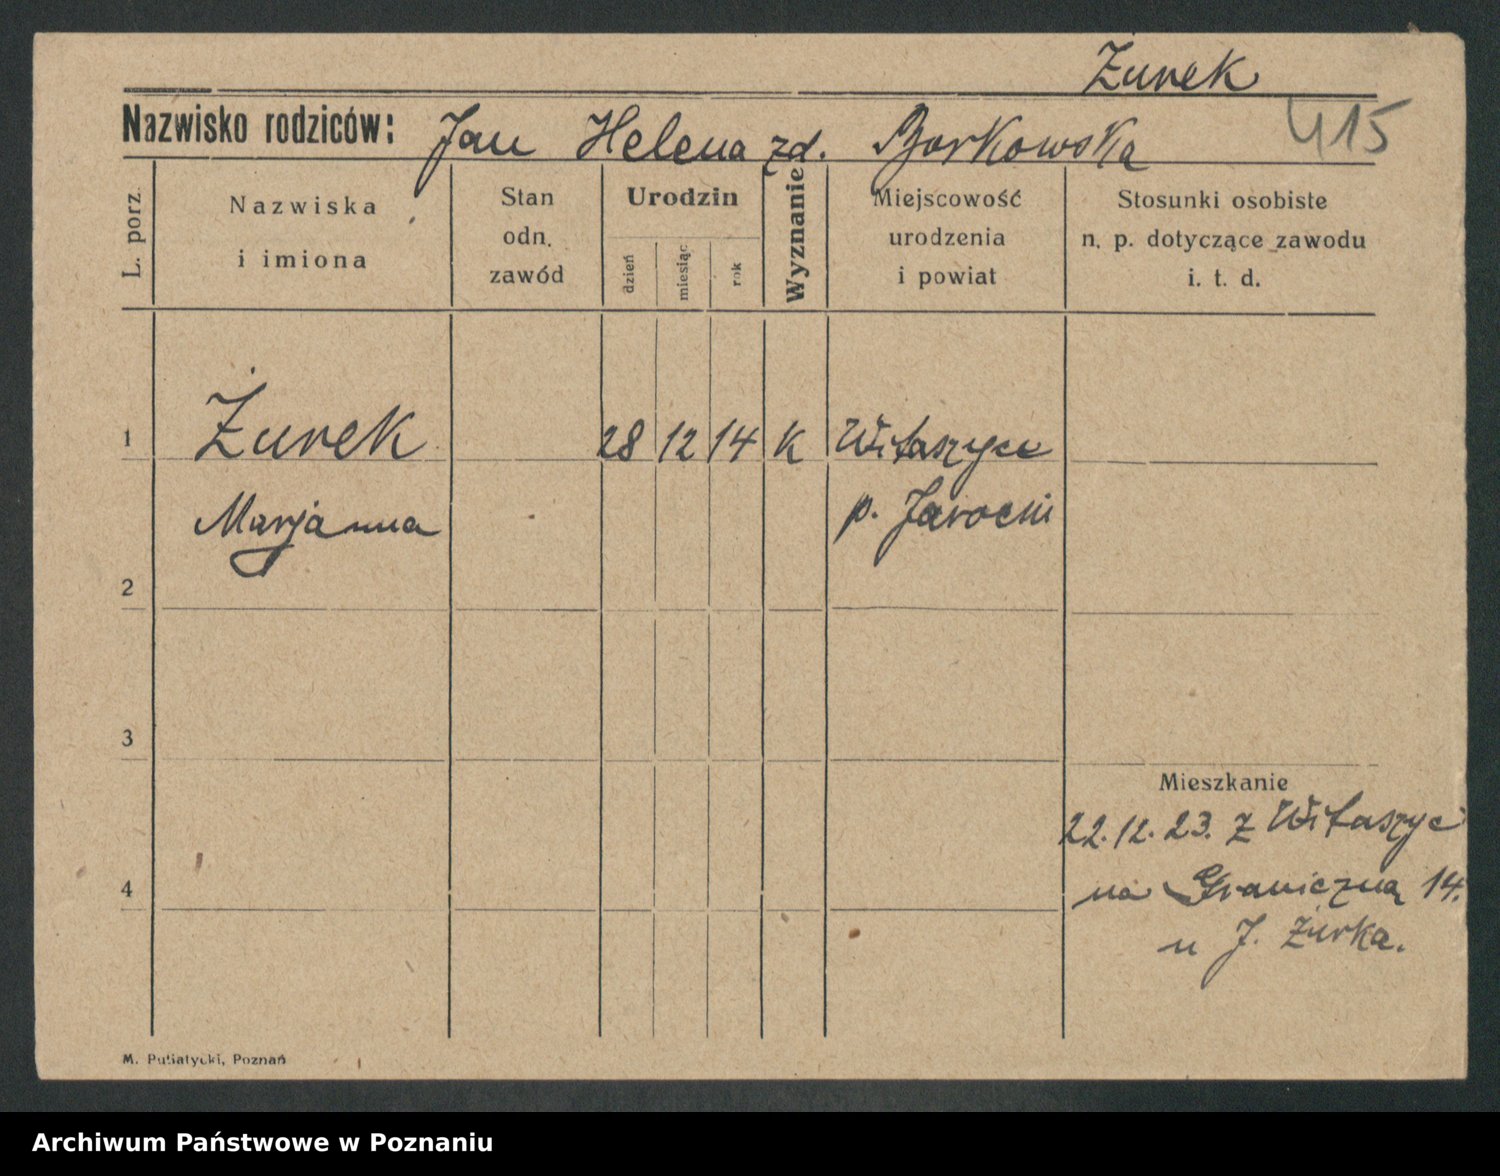 Żurek
Nazwisko rodziców: Jan Helena zd. Borkowska
415
L. porz.
Nazwiska
i imiona
Stan
odn.
zawód
Urodzin
dzień
miesiąc
rok
Wyznanie
Miejscowość
urodzenia
i powiat
Stosunki osobiste
n. p. dotyczące zawodu
i. t. d.
1 Żurek 28 12 14 K Witaszyce
Marjanna p. Jarocin
2
3
Mieszkanie
22.12.23. z Witaszyc
4 na Graniczną 14.
u J. Żurka.
M. Putiatycki, Poznań
Archiwum Państwowe w Poznaniu